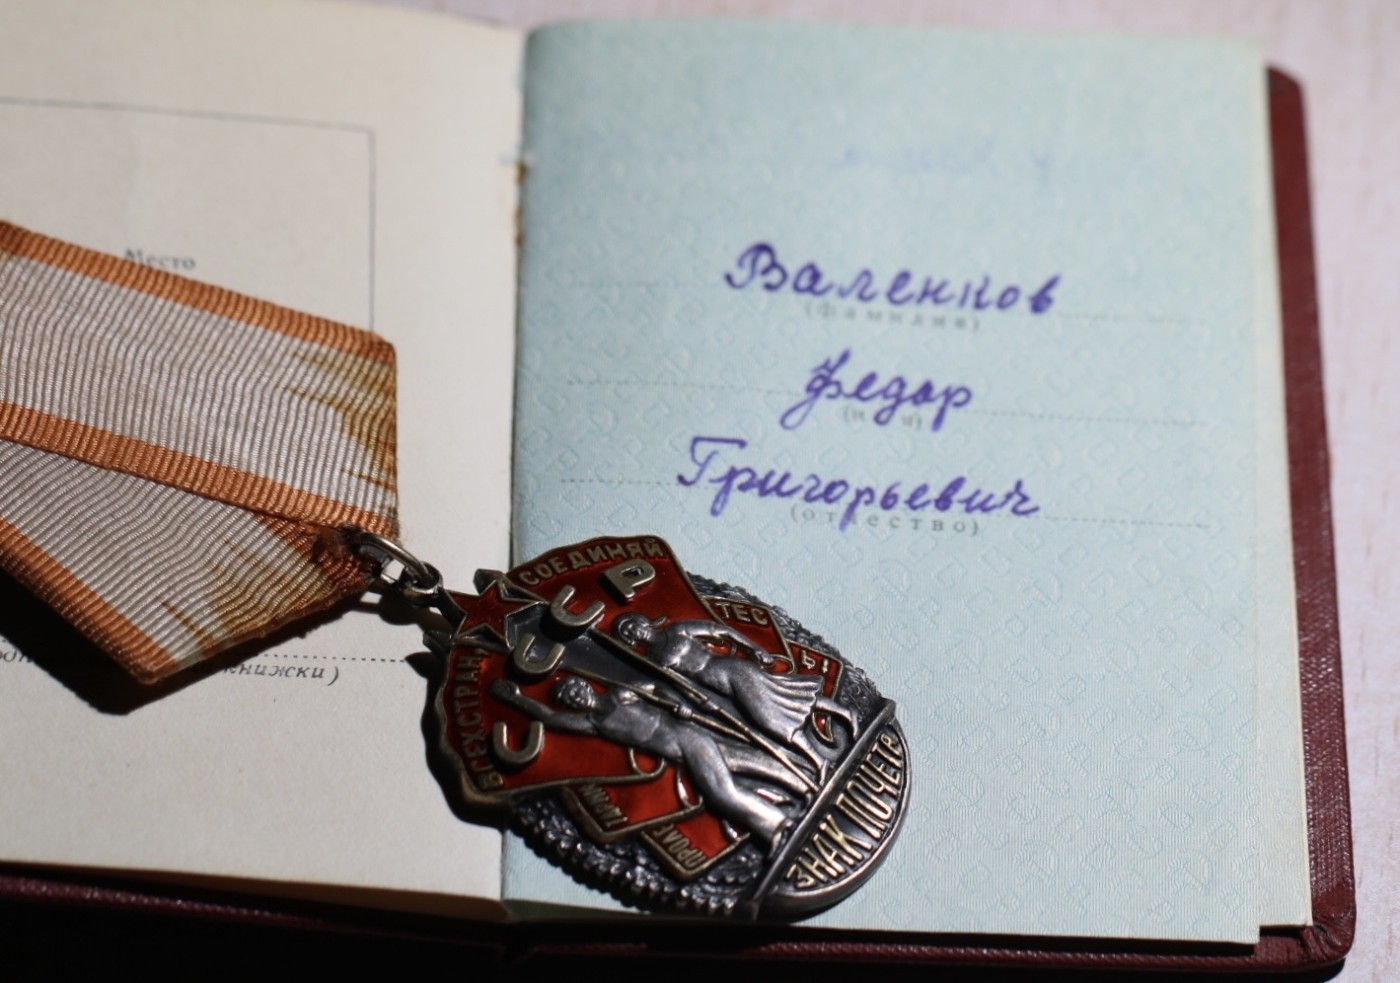 Место
книжки)
Валенков
(фамилия)
Федор
(имя)
Григорьевич
(отчество)
СОЕДИНЯЙ
ТЕС
Ь!
СССР
В.ЕХСТРАН,
ПРОЛЕ
ТАРИИ
ЗНАК ПОЧЕТА